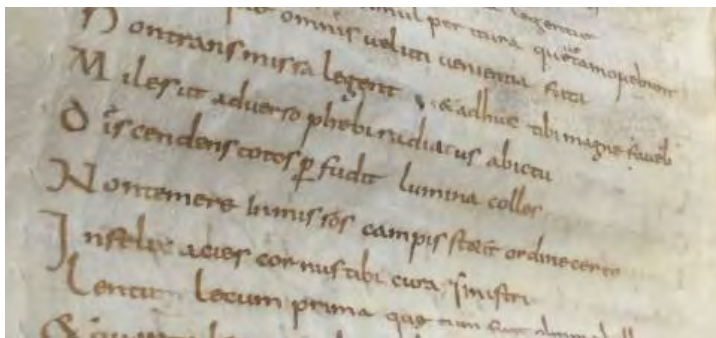 omnis ueluti uenientia fata
Non transmissa legent & adhuc tibi magne faueb
Miles ut aduerso phebi radiatus abictu
Discendens totos pfudit lumina colles
Non temere inmissos campis stetit ordine certo
Infelix acies cornus tibi cura sinistri
Lentu lecum prima que tum fuit